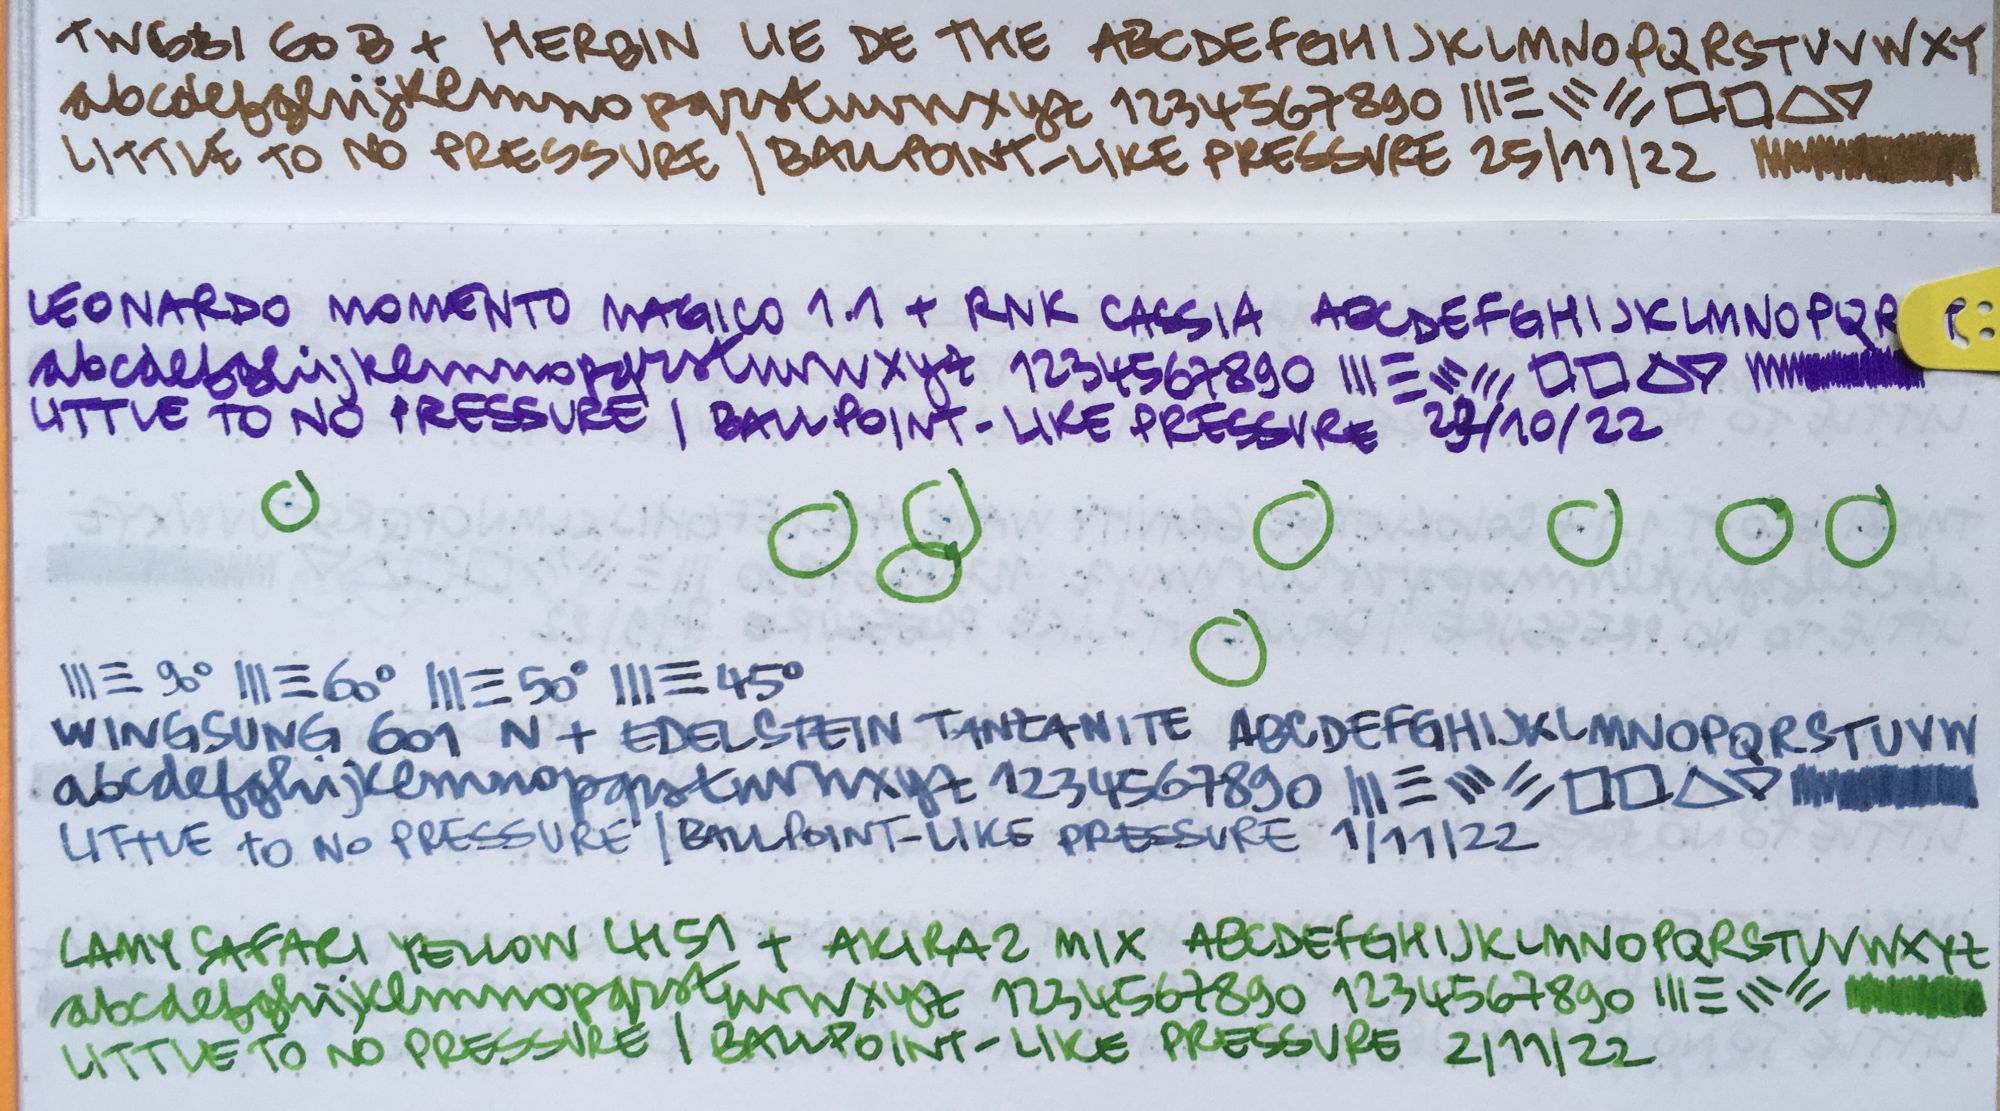 TWSBI GO B + HERBIN LIE DE THE ABCDEFGHIJKLMNOPQRSTUVVWXY
abcdefghijklmnopqrstuvwxyz 1234567890
LITTLE TO NO PRESSURE | BALLPOINT-LIKE PRESSURE 25/11/22
LEONARDO MOMENTO MAGICO 1.1 + RNK CASSIA ABCDEFGHIJKLMNOPQR
abcdefghijklmnopqrstuvwxyz 1234567890
LITTLE TO NO PRESSURE | BALLPOINT-LIKE PRESSURE /10/22
90° 60° 50° 45°
WINGSUNG 601 N + EDELSTEIN TANZANITE ABCDEFGHIJKLMNOPQRSTUVW
abcdefghijklmnopqrstuvwxyz 1234567890
LITTLE TO NO PRESSURE | BALLPOINT-LIKE PRESSURE 1/11/22
LAMY SAFARI YELLOW LH51 + AKIRA2 MIX ABCDEFGHIJKLMNOPQRSTUVWXYZ
abcdefghijklmnopqrstuvwxyz 1234567890 1234567890
LITTLE TO NO PRESSURE | BALLPOINT-LIKE PRESSURE 2/11/22